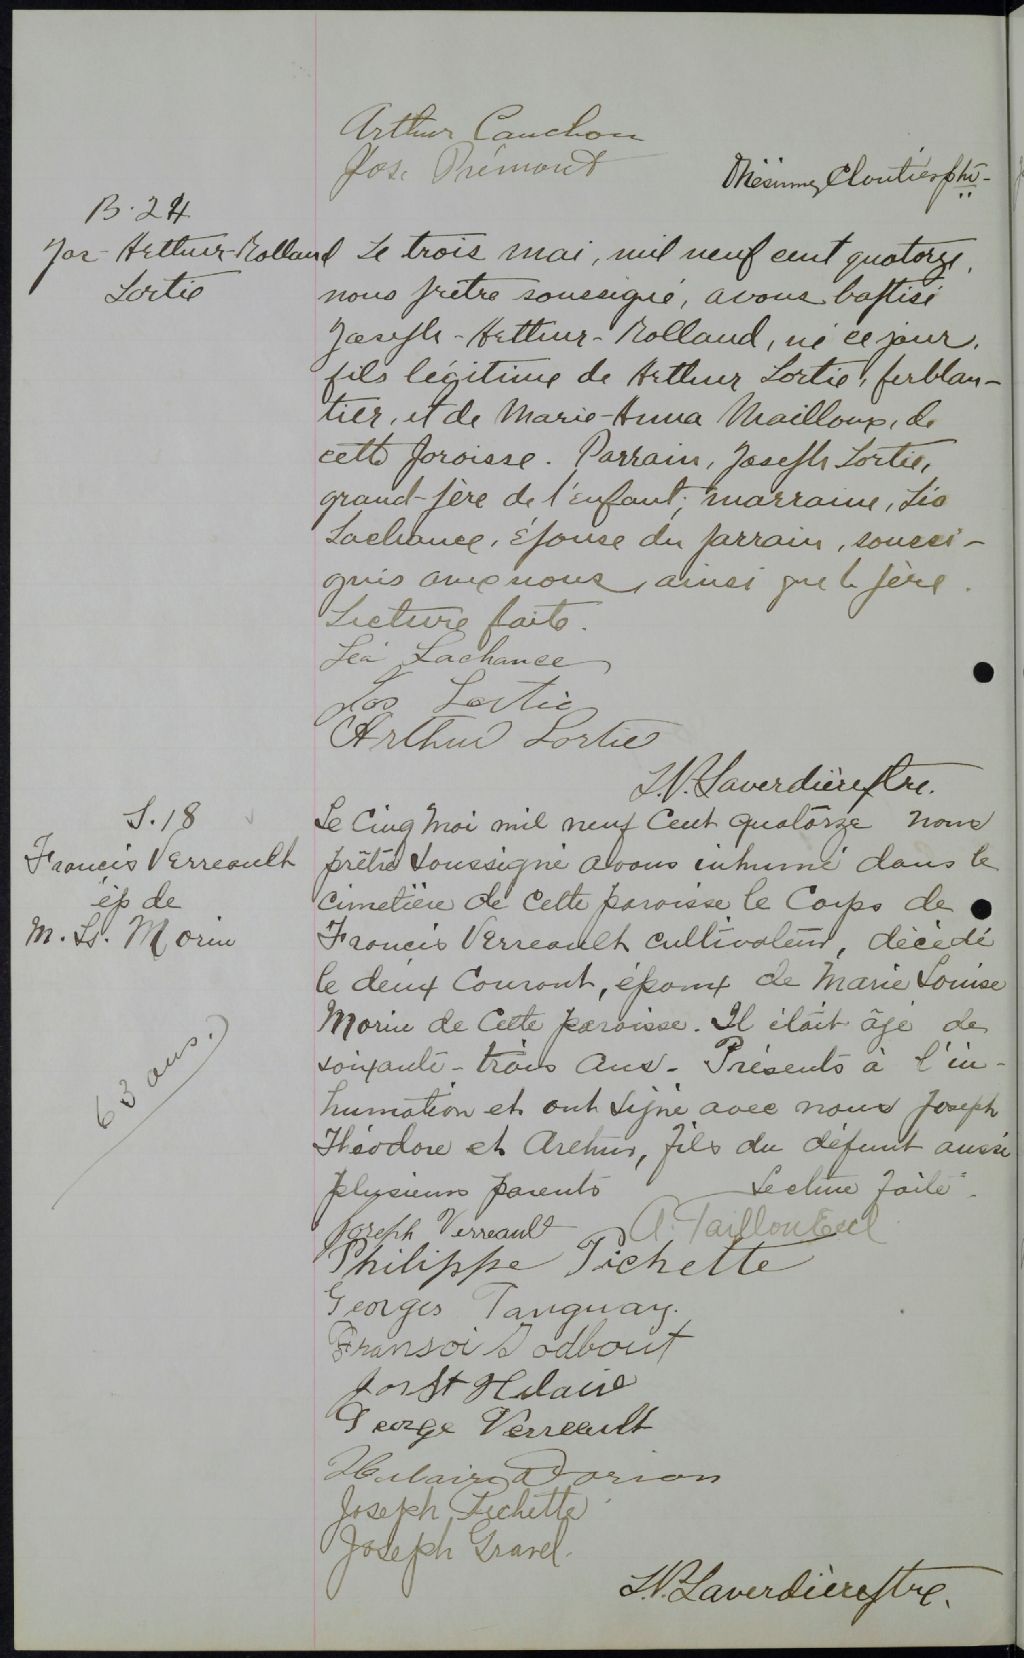 Arthur Cauchon
Jos. Prémont
Cloutier ptre
B. 24
Jos-Arthur-Rolland
Lortie
Le trois mai, mil neuf cent quatorze,
nous prêtre soussigné, avons baptisé
Joseph-Arthur-Rolland, né ce jour,
fils légitime de Arthur Lortie, ferblan-
tier, et de Marie-Anna Mailloux, de
cette paroisse. Parrain, Joseph Lortie,
grand-père de l'enfant; marraine, Léa
Lachance, épouse du parrain, soussi-
gnés avec nous, ainsi que le père.
Lecture faite.
Léa Lachance
Jos Lortie
Arthur Lortie
L.V. Laverdière ptre.
S. 18
Francis Verreault
ép de
M. Ls. Morin
63 ans.
Le Cinq Mai mil neuf Cent quatorze nous
prêtre soussigné avons inhumé dans le
cimetière de cette paroisse le Corps de
Francis Verreault cultivateur, décédé
le deux Courant, époux de Marie Louise
Morin de Cette paroisse. Il était âgé de
soixante-trois ans. Présents à l'in-
humation et ont signé avec nous Joseph
Théodore et Arthur, fils du défunt aussi
plusieurs parents Lecture faite.
Joseph Verreault
Philippe Pichette
Georges Tanguay.
Fransoi Godbout
Jos St Hilaire
George Verreault
Hilaire Dorion
Joseph Pichette
Joseph Gravel.
L.V. Laverdière ptre.